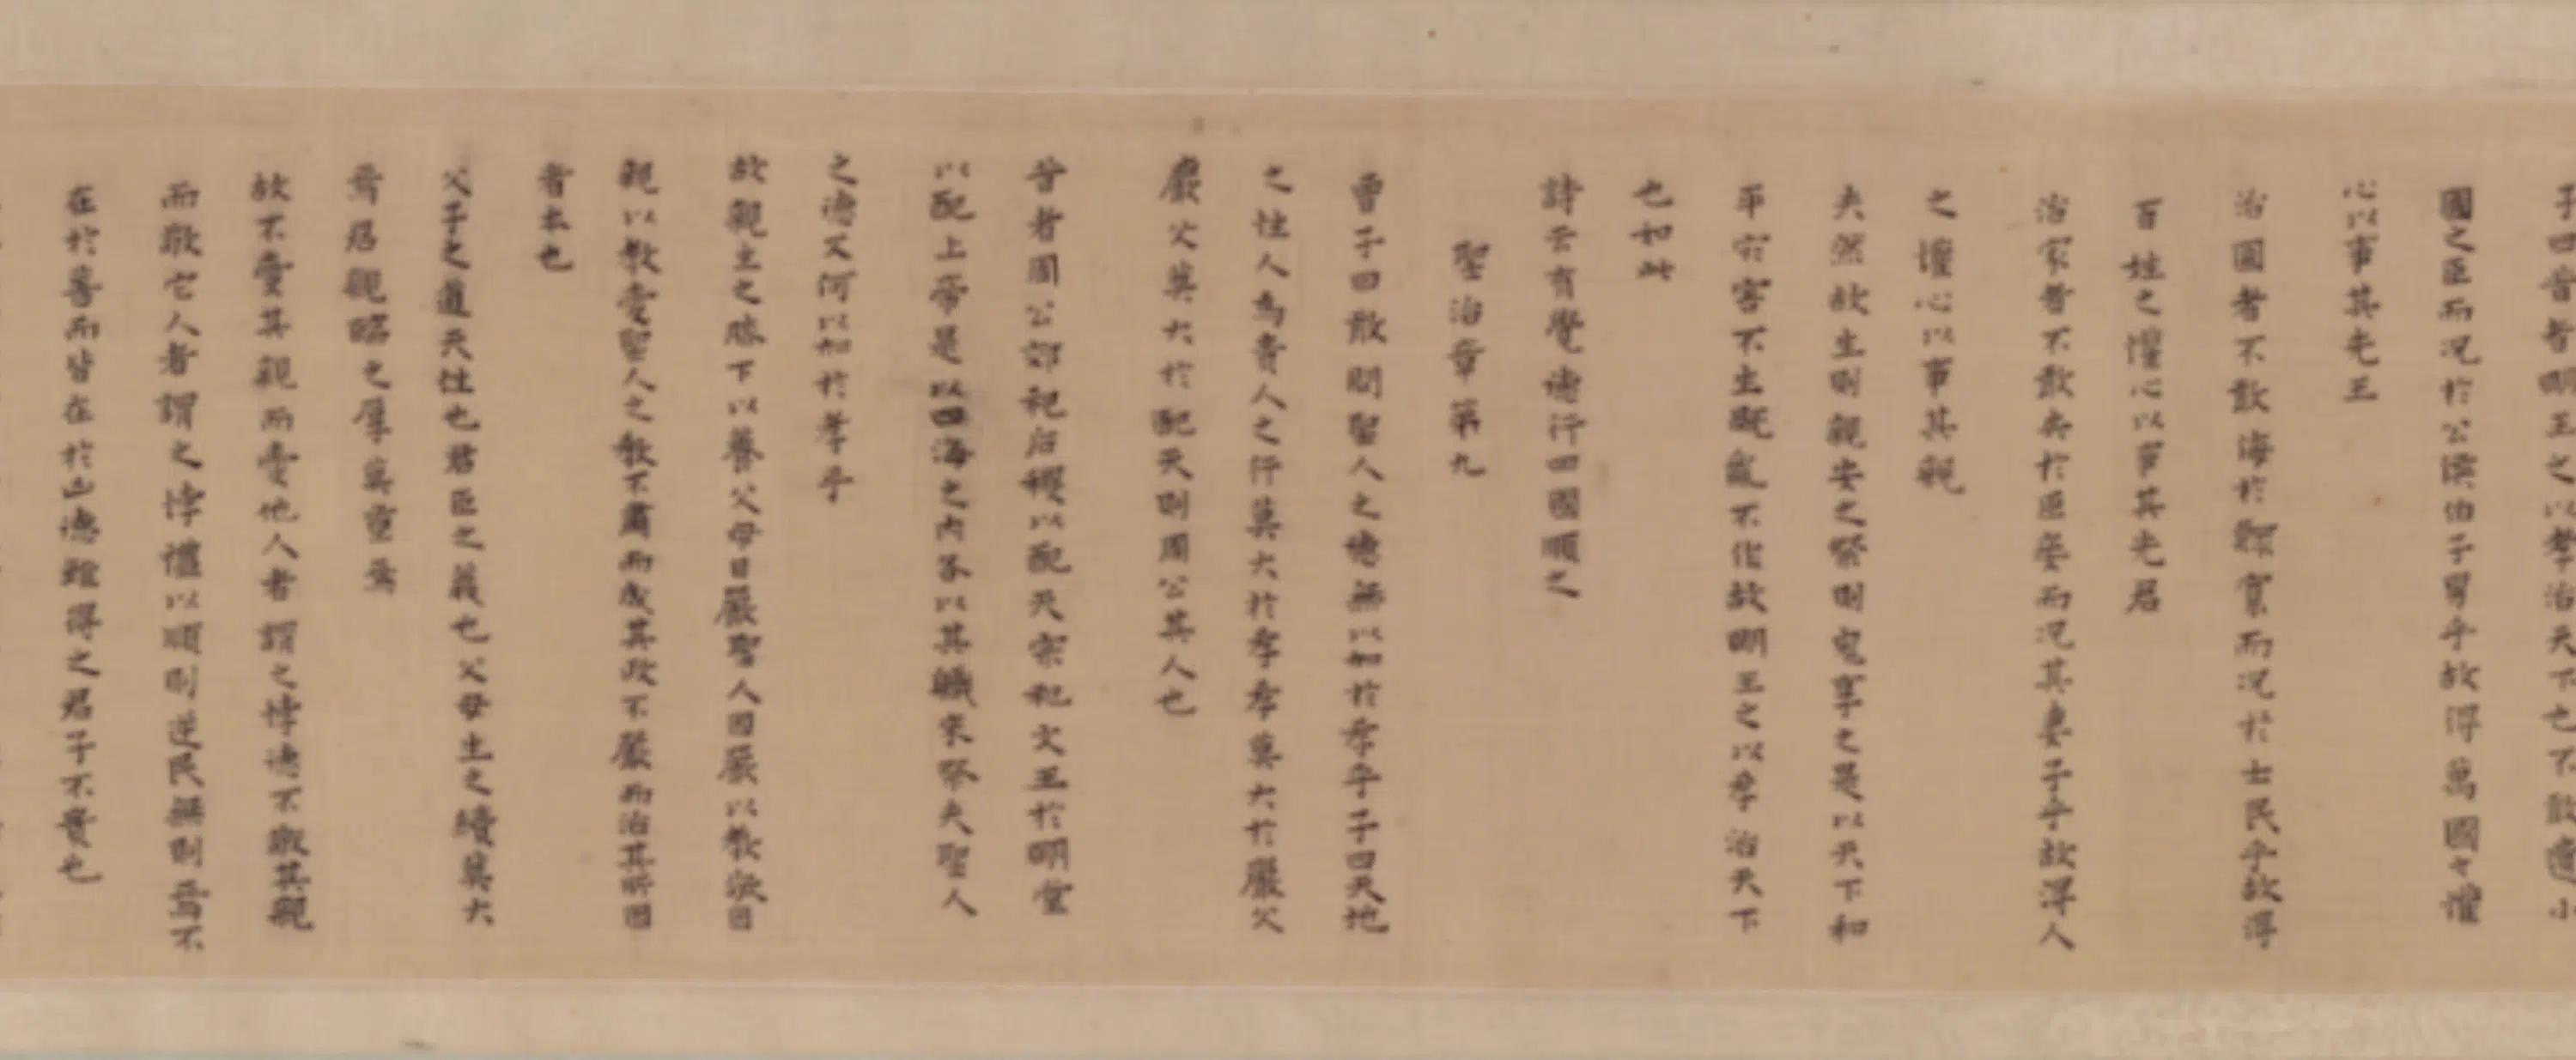 子曰昔者明王之以孝治天下也不敢遺小
國之臣而況於公侯伯子男乎故得萬國之懽
心以事其先王
治國者不敢侮於鰥寡而況於士民乎故得
百姓之懽心以事其先君
治家者不敢失於臣妾而況其妻子乎故得人
之懽心以事其親
夫然故生則親安之祭則鬼享之是以天下和
平灾害不生禍亂不作故明王之以孝治天下
也如此
詩云有覺德行四國順之
聖治章第九
曾子曰敢問聖人之德無以加於孝乎子曰天地
之性人為貴人之行莫大於孝孝莫大於嚴父
嚴父莫大於配天則周公其人也
昔者周公郊祀后稷以配天宗祀文王於明堂
以配上帝是以四海之內各以其職來祭夫聖人
之德又何以加於孝乎
故親生之膝下以養父母日嚴聖人因嚴以教敬因
親以教愛聖人之教不肅而成其政不嚴而治其所因
者本也
父子之道天性也君臣之義也父母生之續莫大
焉君親臨之厚莫重焉
故不愛其親而愛他人者謂之悖德不敬其親
而敬它人者謂之悖禮以順則逆民無則焉不
在於善而皆在於凶德雖得之君子不貴也